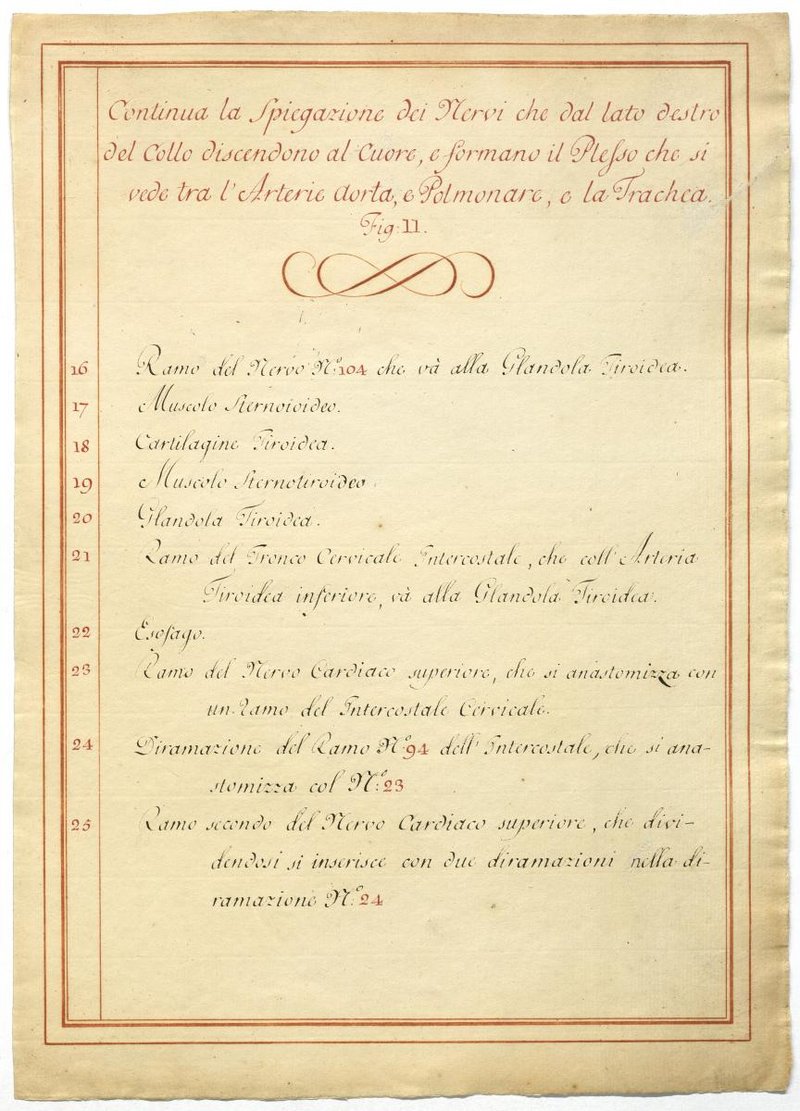 Continua la Spiegazione dei Nervi che dal lato destro
del Collo discendono al Cuore, e formano il Plesso che si
vede tra l'Arterie Aorta, e Polmonare, e la Trachea.
Fig. 11.
16 Ramo del Nervo N.º 104 che và alla Glandola Tiroidea.
17 Muscolo Sternoioideo.
18 Cartilagine Tiroidea.
19 Muscolo Sternotiroideo.
20 Glandola Tiroidea.
21 Ramo del Tronco Cervicale Intercostale, che coll'Arteria
Tiroidea inferiore, và alla Glandola Tiroidea.
22 Esofago.
23 Ramo del Nervo Cardiaco superiore, che si anastomizza con
un Ramo del Intercostale Cervicale.
24 Diramazione del Ramo N.º 94 dell'Intercostale, che si ana-
stomizza col N.º 23
25 Ramo secondo del Nervo Cardiaco superiore, che divi-
dendosi si inserisce con due diramazioni nella di-
ramazione N.º 24